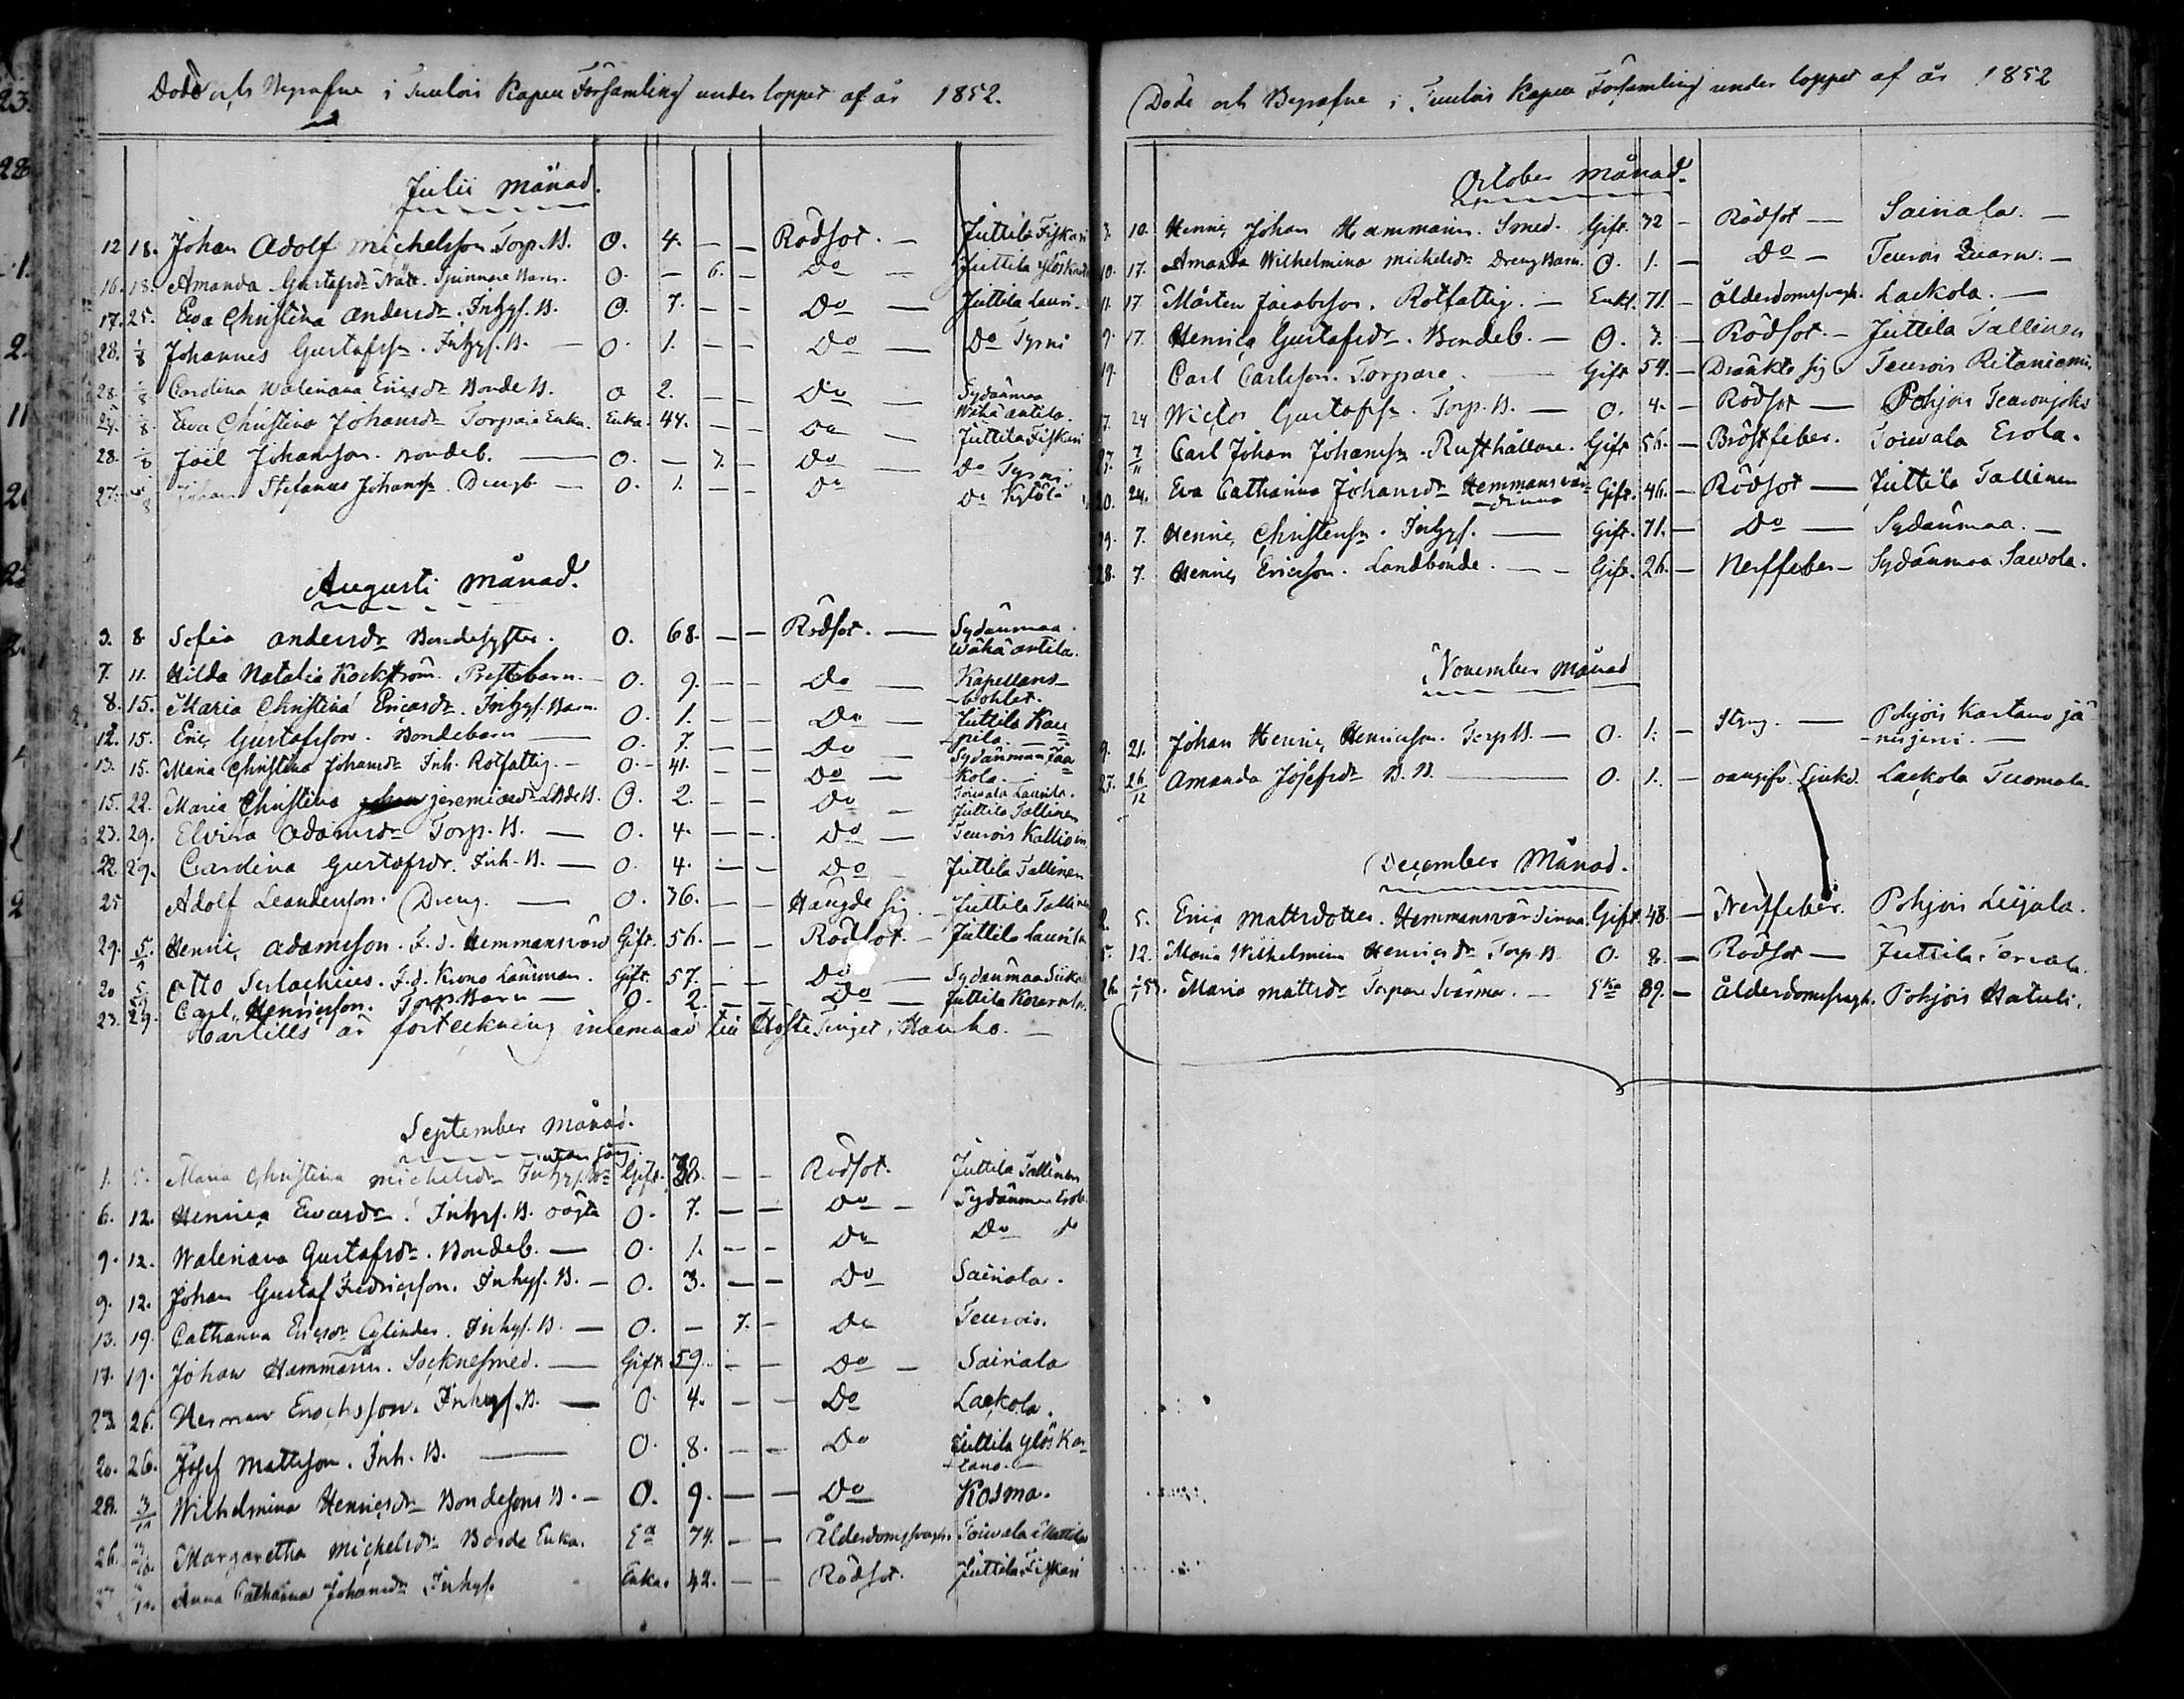 Döde och Begrafne i Tuulois Kapell Församling under loppet af år 1852.
Julii månad.
12 18. Johan Adolf Michelsson Torp. B. O. 4. — — Rödsot. — Juttila Fiskari
16. 18. Amanda Gustafsdr Nätt. Spinnare Barn. O. — 6. — Do —
17. 25. Eva Christina Andersdr. Inhys. B. O. 7. — — Do — Juttila Lauri
28. 1/8 Johannes Gustafsson. Inhys. B. — O. 1. — — Do — Do Tyrni
28. 1/8 Carolina Waleriana Ericsdr Bonde B. O 2. — — Do — Sydänmaa Wähäantila.
8 Eva Christina Johansdr Torpare Enka. Enka. 44. — — Do — Juttila Fiskari
28. 1/8 Joël Johansson. Bondeb. — O. — 7. — Do — Do Tyrni
27. 8 Johan Stefanus Johanss. Drengb. — O. 1. — — Do Do
Augusti månad.
3. 8. Sofia Andersdr Bondesyster. O. 68. — — Rödsot. — Sydänmaa Wähäantila.
7. 11. Hilda Natalia Kockström. Prestebarn. — O. 9. — — Do — Kapellans-bohlet.
8. 15. Maria Christina Ericsdr. Inhys. Barn. O. 1. — — Do — Juttila Kau-pila.
12. 15. Eric Gustafsson. Bondebarn — O. 7. — — Do — Sydänmaa Jaa-kola.
13. 15. Maria Christina Johansdr Inh. Rotfattig. — O. 41. — — Do —
15. 22. Maria Christina Jeremiaedr LBde B. O. 2. — — Do — Juttila Tallinen
23. 29. Elvira Adamsdr Torp. B. — O. 4. — — Do — Teurois
22. 29. Carolina Gustafsdr. Inh. B. — O. 4. — — Do — Juttila Tallinen
25 Adolf Leandersson. Dreng. — O. 36. — — Hängde sig. — Juttila Tallinen
29. 5/9 Henric Adamsson. F. d. Hemmansvärd Gift. 56. — — Rödsot. — Juttila Laurila
20 5. Otto Serlachius. F.d. Krono Länsman. Gift. 57. — — Do — Sydänmaa
23. 29. Carl Henricsson. Torp. Barn — O. 2. — — Do — Juttila
Härtills är förteckning inlemnad till Höste Tinget i Hauho. —
September månad.
1. 5. Maria Christina Michelsdr Inhys. Gift. — — Rödsot. Juttila Tallinen
6. 12. Henrica Ewardr. Inhys. B. oägta O. 7. — — Do — Sydänmaa Erola
9. 12. Waleriana Gustafsdr. Bondeb. — O. 1. — — Do Do do
9. 12. Johan Gustaf Fredricsson. Inhys. B. — O. 3. — — Do Sairiala.
13. 19. Catharina Ericsdr Cylinder. Inhys. B. — O. — 7. — Do Teurois.
17. 19. Johan Hammarin. Socknesmed. — Gift. 59. — — Do — Sairiala
23. 26. Herman Enochsson. Inhys. B. — O. 4. — — Do Lackola.
20. 26. Josef Mattsson. Inh. B. — O. 8. — — Do Juttila
28. 3/10 Wilhelmina Henricsdr Bondesons B. — O. 9. — — Do Kosma.
26. 3/10. Margaretha Michelsdr Bonde Enka. 74. — — Ålderdomssvagh. Toivala Mattila
Anna Catharina Johansdr Inhys. Enka. 42. — — Rödsot. Juttila Fiskari
Döde och Begrafne i Tuulois Kapell Församling under loppet af år 1852
October månad.
3. 10. Henric Johan Hammarin. Smed. Gift. 32 — Rödsot — Sairiala. —
10. 17. Amanda Wilhelmina Michelsdr Dreng Barn. O. 1. — Do — Teurois Quarn. —
11. 17. Mårten Jacobsson. Rotfattig. — Enkl. 71. — Ålderdomssvagh. Lackola. —
9. 17. Henrica Gustafsdr. Bondeb. — O. 3. — Rödsot. — Juttila Tallinen
19. Carl Carlsson. Torpare. — Gift 54. — Dränkte sig Teurois Ritaniemi
17. 24 Wictor Gustafss. Torp. B. — O. 4. — Rödsot — Pohjois Teuronjoki
27. 7/11 Carl Johan Johanss. Rusthållare. Gift 56. — Bröstfeber. Toivala Erola.
20. 24. Eva Catharina Johansdr Hemmansvär-dinna Gift. 46. — Rödsot — Juttila Tallinen
29. 7. Henric Christerss. Inhys. — Gift. 71. — Do — Sydänmaa. —
28. 7. Henric Ericsson. Landbonde. — Gift. 26. — Nerffeber — Sydänmaa Sawola.
November månad
9. 21. Johan Henric Henricsson. Torp B. — O. 1. — Slag. — Pohjois Kartano jä-nisjervi. —
27. 26/12 Amanda Josefsdr B. B. — O. 1. — oangifv. Sjukd. Lackola Tuomala
December Månad.
2. 5. Erica Mattsdotter. Hemmansvärdinna. Gift. 48. — Nerffeber. Pohjois Leijala.
5. 12. Maria Wilhelmina Henricsdr Torp. B. O. 8. — Rödsot — Juttila
26. 1/1 53. Maria Mattsdr Torpare Svärmor. — Eka 89. — Ålderdomssvagh. Pohjois Hatuli.